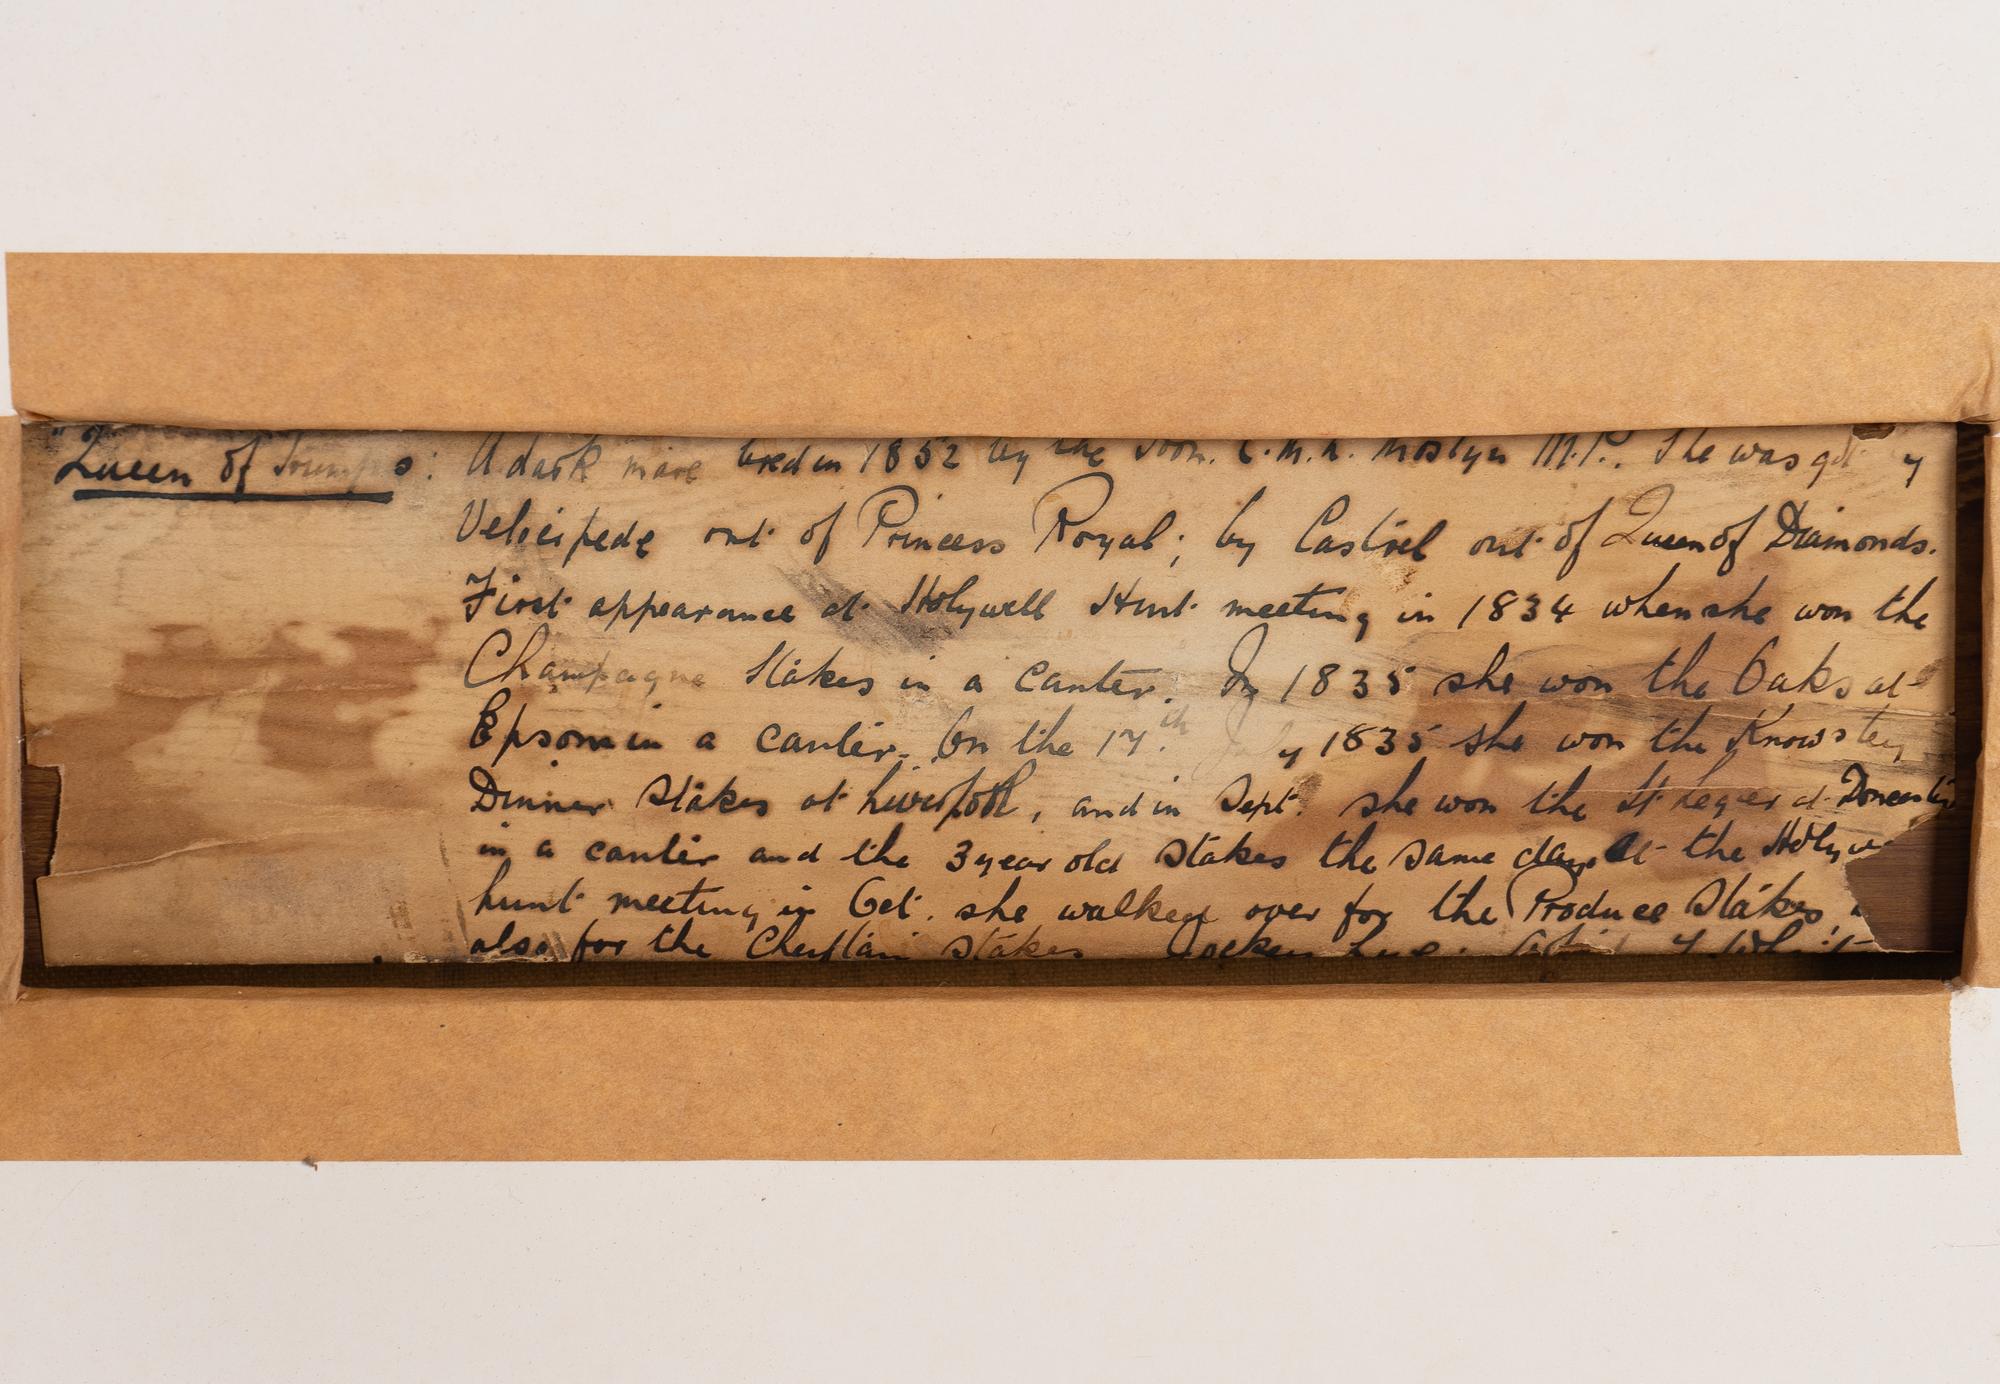 "Queen of Trumps: A dark mare bred in 1852 by the Hon. E. M. L. Mostyn M.P.. She was got y
Velocipede out of Princess Royal; by Castrel out of Queen of Diamonds.
First appearance at Holywell Hunt meeting in 1834 when she won the
Champagne Stakes in a canter. In 1835 she won the Oaks at
Epsom in a canter. On the 17th. July 1835 she won the Knowsley
Dinner Stakes at Liverpool, and in Sept. she won the St Leger at Doncaster
in a canter and the 3 year old Stakes the same day. At the Holyw
hunt meeting in Oct. she walked over for the Produce Stakes,
also for the Chieftain Stakes